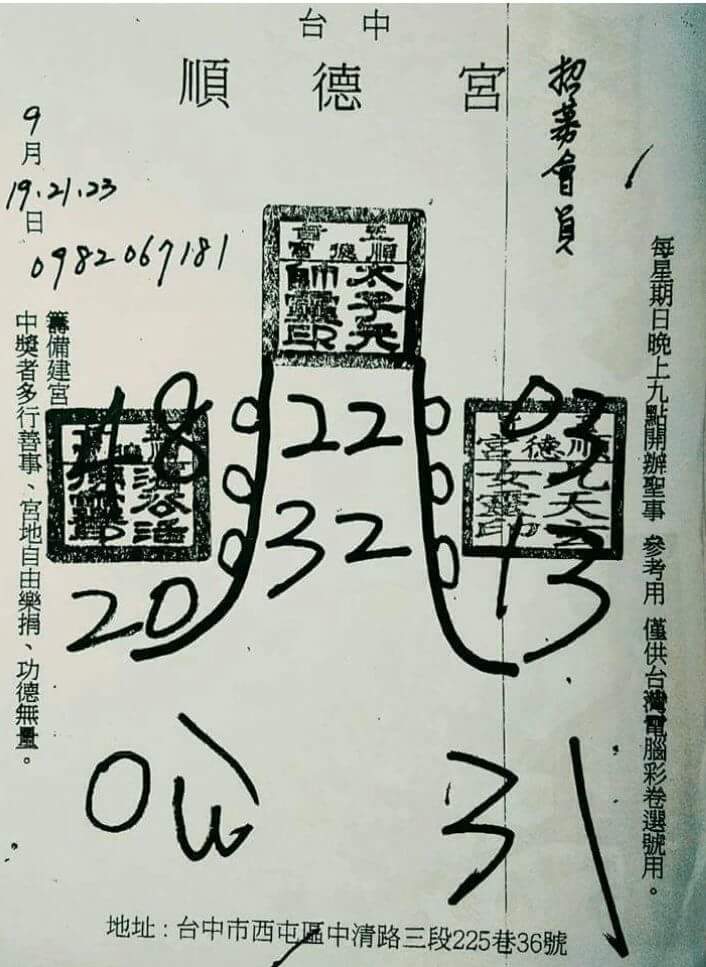 台中
順德宮
招募會員
9月
19.21.23
日
0982067181
每星期日晚上九點開辦聖事 參考用 僅供台灣電腦彩卷選號用。
籌備建宮
中獎者多行善事、宮地自由樂捐、功德無量。
順德宮
太子元
帥靈印
22
32
18
20
濟公活
順德宮
九天玄
女靈印
03
13
31
地址:台中市西屯區中清路三段225巷36號